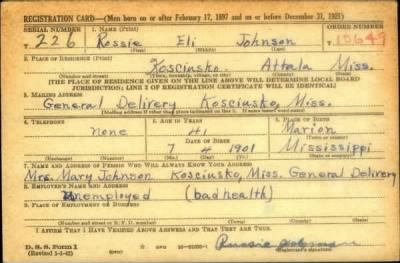 REGISTRATION CARD—(Men born on or after February 17, 1897 and on or before December 31, 1921)
SERIAL NUMBER 1. NAME (Print) ORDER NUMBER
T 226 Rossie Eli Johnson T 10649
(First) (Middle) (Last)
2. PLACE OF RESIDENCE (Print)
Kosciusko Attala Miss.
(Number and street) (Town, township, village, or city) (County) (State)
[THE PLACE OF RESIDENCE GIVEN ON THE LINE ABOVE WILL DETERMINE LOCAL BOARD
JURISDICTION; LINE 2 OF REGISTRATION CERTIFICATE WILL BE IDENTICAL]
3. MAILING ADDRESS
General Delivery Kosciusko, Miss.
[Mailing address if other than place indicated on line 2. If same insert word same]
4. TELEPHONE 5. AGE IN YEARS 6. PLACE OF BIRTH
none 41 Marion
DATE OF BIRTH (Town or county)
7 4 1901 Mississippi
(Exchange) (Number) (Mo.) (Day) (Yr.) (State or country)
7. NAME AND ADDRESS OF PERSON WHO WILL ALWAYS KNOW YOUR ADDRESS
Mrs. Mary Johnson Kosciusko, Miss. General Delivery
8. EMPLOYER'S NAME AND ADDRESS
Unemployed (bad health)
9. PLACE OF EMPLOYMENT OR BUSINESS
(Number and street or R. F. D. number) (Town) (County) (State)
I AFFIRM THAT I HAVE VERIFIED ABOVE ANSWERS AND THAT THEY ARE TRUE.
D. S. S. Form 1
(Revised 1-1-42) GPO (Registrant's signature)